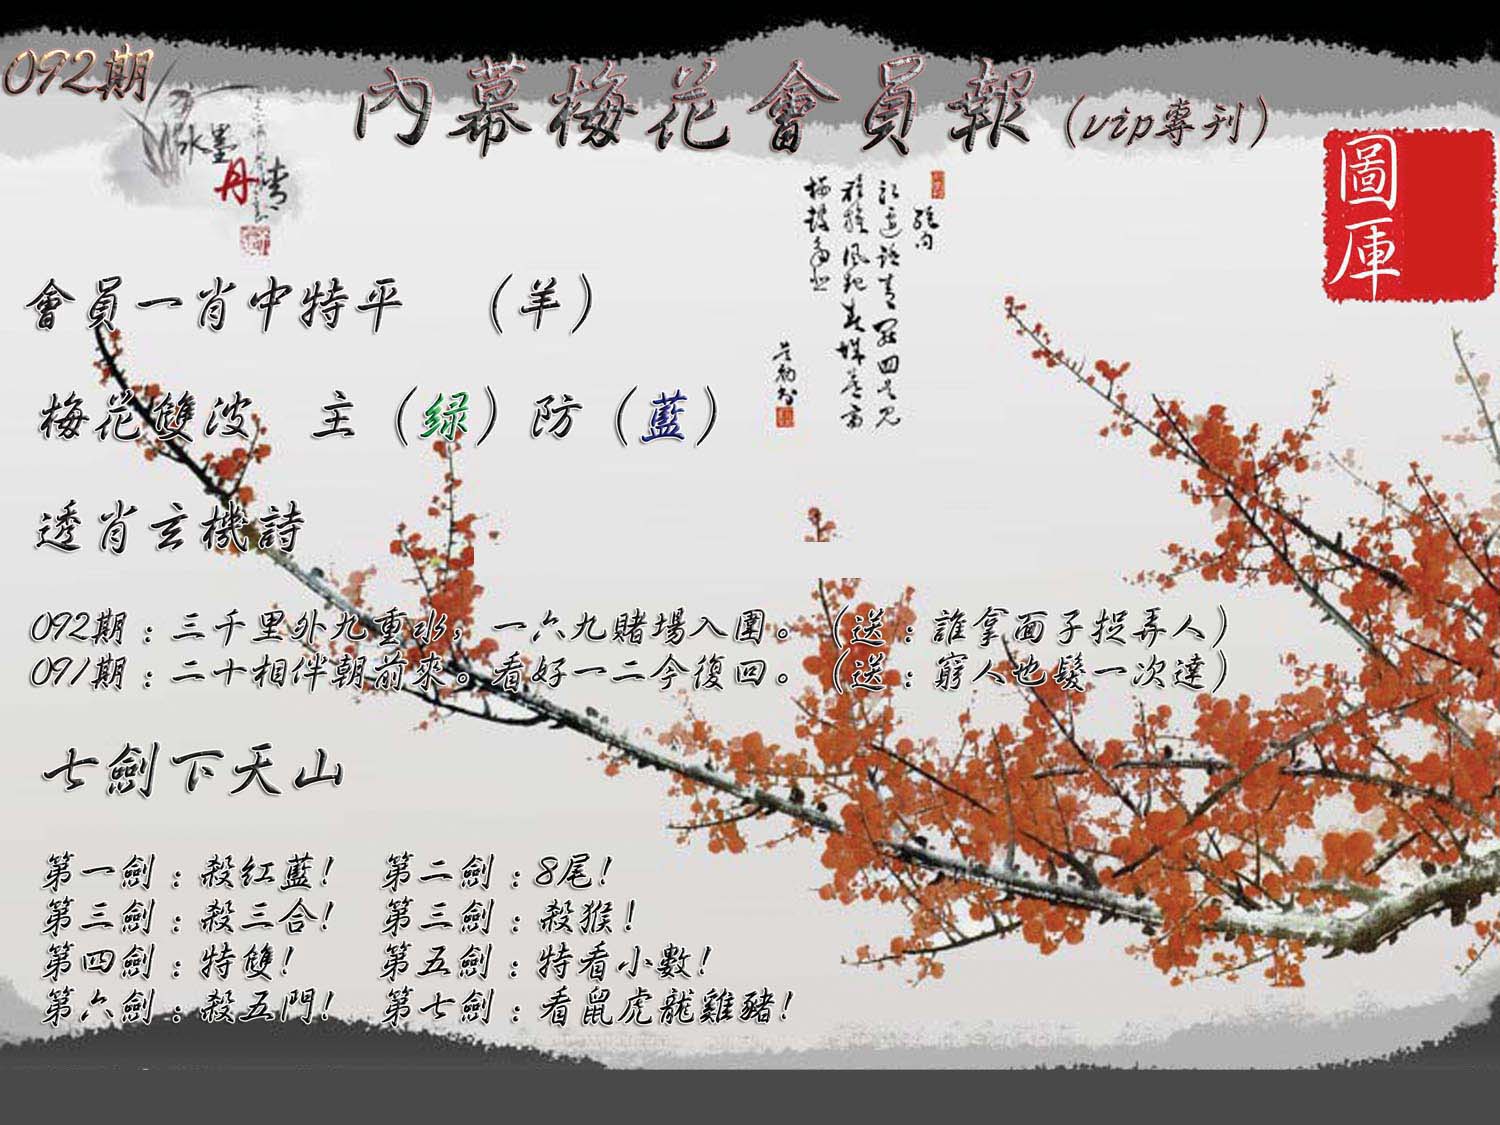 092期
內幕梅花會員報（vip專刊）
水墨
丹青
圖庫
會員一肖中特平　（羊）
梅花雙波　主（绿）防（藍）
透肖玄機詩
092期：三千里外九重水，一六九賭場入圍。（送：誰拿面子捉弄人）
091期：二十相伴朝前來。看好一二今復回。（送：窮人也髮一次達）
七劍下天山
第一劍：殺红藍！　第二劍：8尾！
第三劍：殺三合！　第三劍：殺猴！
第四劍：特雙！　第五劍：特看小數！
第六劍：殺五門！　第七劍：看鼠虎龍雞豬！